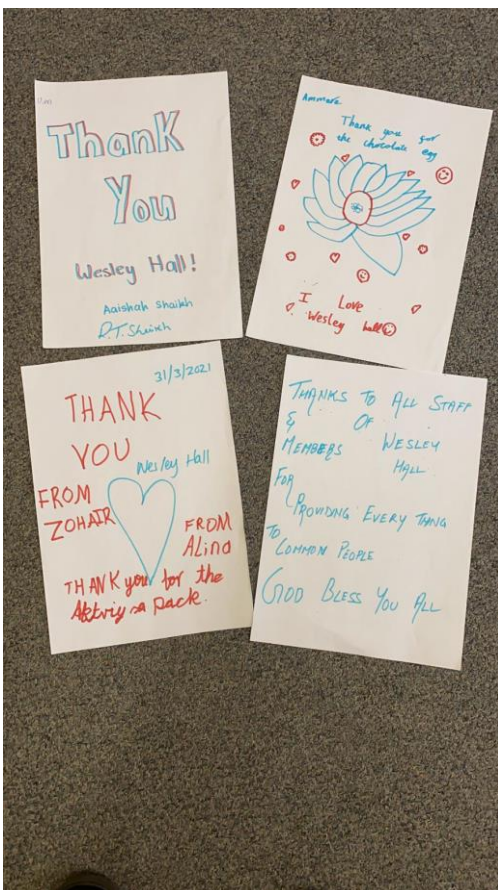 Thank
You
Wesley Hall!
Aaishah Shaikh
Ammara
Thank you for
the chocolate egg
I Love
Wesley hall
31/3/2021
THANK
YOU
Wesley Hall
FROM
ZOHAIR
FROM
Alina
THANK you for the
pack.
THANKS TO ALL STAFF
& OF
MEMBERS WESLEY
HALL
FOR
PROVIDING EVERY THANG
TO
COMMON PEOPLE
GOD BLESS YOU ALL